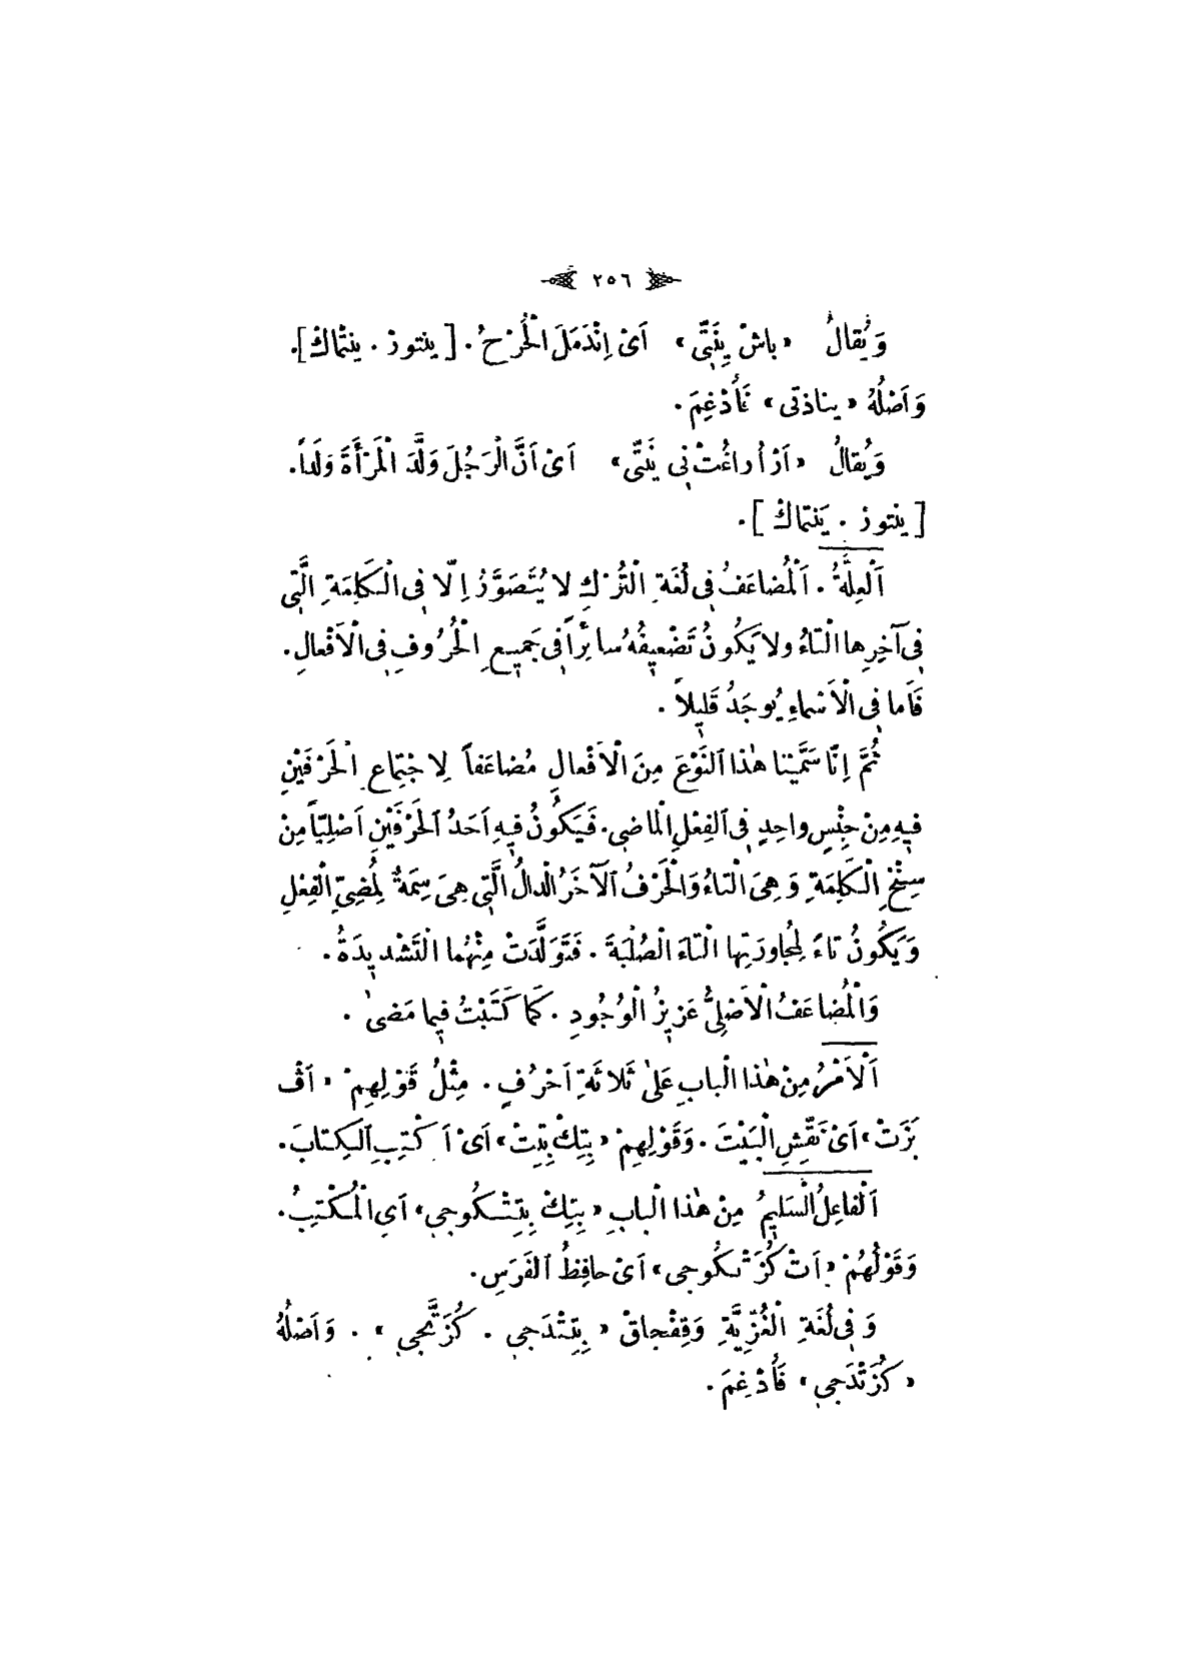 ٢٥٦
وَيُقالُ «باشْ يِنَتّى» اَىْ اِنْدَمَلَ الْجُرْحُ. [ينتوز. ينتماكْ].
وَاَصْلُهُ «يناذتى» فَأُدْغِمَ.
وَيُقالُ «اَرْ اُراغُتْنِى يَنَتّى» اَىْ اَنَّ الرَجُلَ وَلَّدَ الْمَرْأَةَ وَلَداً.
[ينتوز. يَنتماكْ].
اَلْعِلَّةُ. اَلْمُضاعَفُ فِى لُغَةِ الْتُرْكِ لا يُتَصَوَّرُ اِلّا فِى الْكَلِمَةِ الَّتِى
فِى آخِرِها الْتاءُ ولا يَكُونُ تَضْعِيفُهُ سائِراً فِى جَمِيعِ الْحُرُوفِ فِى الْاَفْعالِ.
فَاَما فِى الْاَسْماءِ يُوجَدُ قَلِيلاً.
ثُمَّ اِنّا سَمَّيْنا هٰذا اَلنَوْعَ مِنَ الْاَفْعالِ مُضاعَفاً لِاجْتِماعِ الْحَرْفَيْنِ
فِيهِ مِنْ جِنْسٍ واحِدٍ فِى اَلفِعْلِ الْماضِى. فَيَكُونُ فِيهِ اَحَدُ اَلحَرْفَيْنِ اَصْلِيّاً مِنْ
سِنْخِ الْكَلِمَةِ وَهِىَ الْتاءُ وَالْحَرْفُ اَلآخَرُ الْدالُ الَّتِى هِىَ سِمَةٌ لِمُضِىِّ الْفِعْلِ
وَيَكُونُ تاءً لِمُجاوَرَتِها الْتاءَ الْصُلْبَةَ. فَتَوَلَّدَتْ مِنْهُما الْتَشْدِيدَةُ.
وَالْمُضاعَفُ الْاَصْلِىُّ عَزِيزُ الْوُجُودِ. كَما كَتَبْتُ فِيما مَضىٰ.
اَلْاَمْرُ مِنْ هٰذا الْبابِ عَلىٰ ثَلاثَةِ اَحْرُفٍ. مِثْلُ قَوْلِهِمْ «اَڤْ
بَزَتْ» اَىْ نَقِّشِ الْبَيْتَ. وَقَوْلِهِمْ «بِتِكْ بِتِتْ» اَىْ اَكْتِبِ اَلْكِتابَ.
اَلْفاعِلُ الْسَلِيمُ مِنْ هٰذا الْبابِ «بِتِكْ بِتِتْكُوجِى» اَىِ الْمُكْتِبُ.
وَقَوْلُهُمْ «اَتْ كُزَتْكُوجِى» اَىْ حافِظُ اَلفَرَسِ.
وَفِى لُغَةِ الْغُزِّيَّةِ وَقِفْجاقْ «بِتِتْدَجِى. كُزَتَّجِى». وَاَصْلُهُ
«كُزَتْدَجِى» فَأُدْغِمَ.